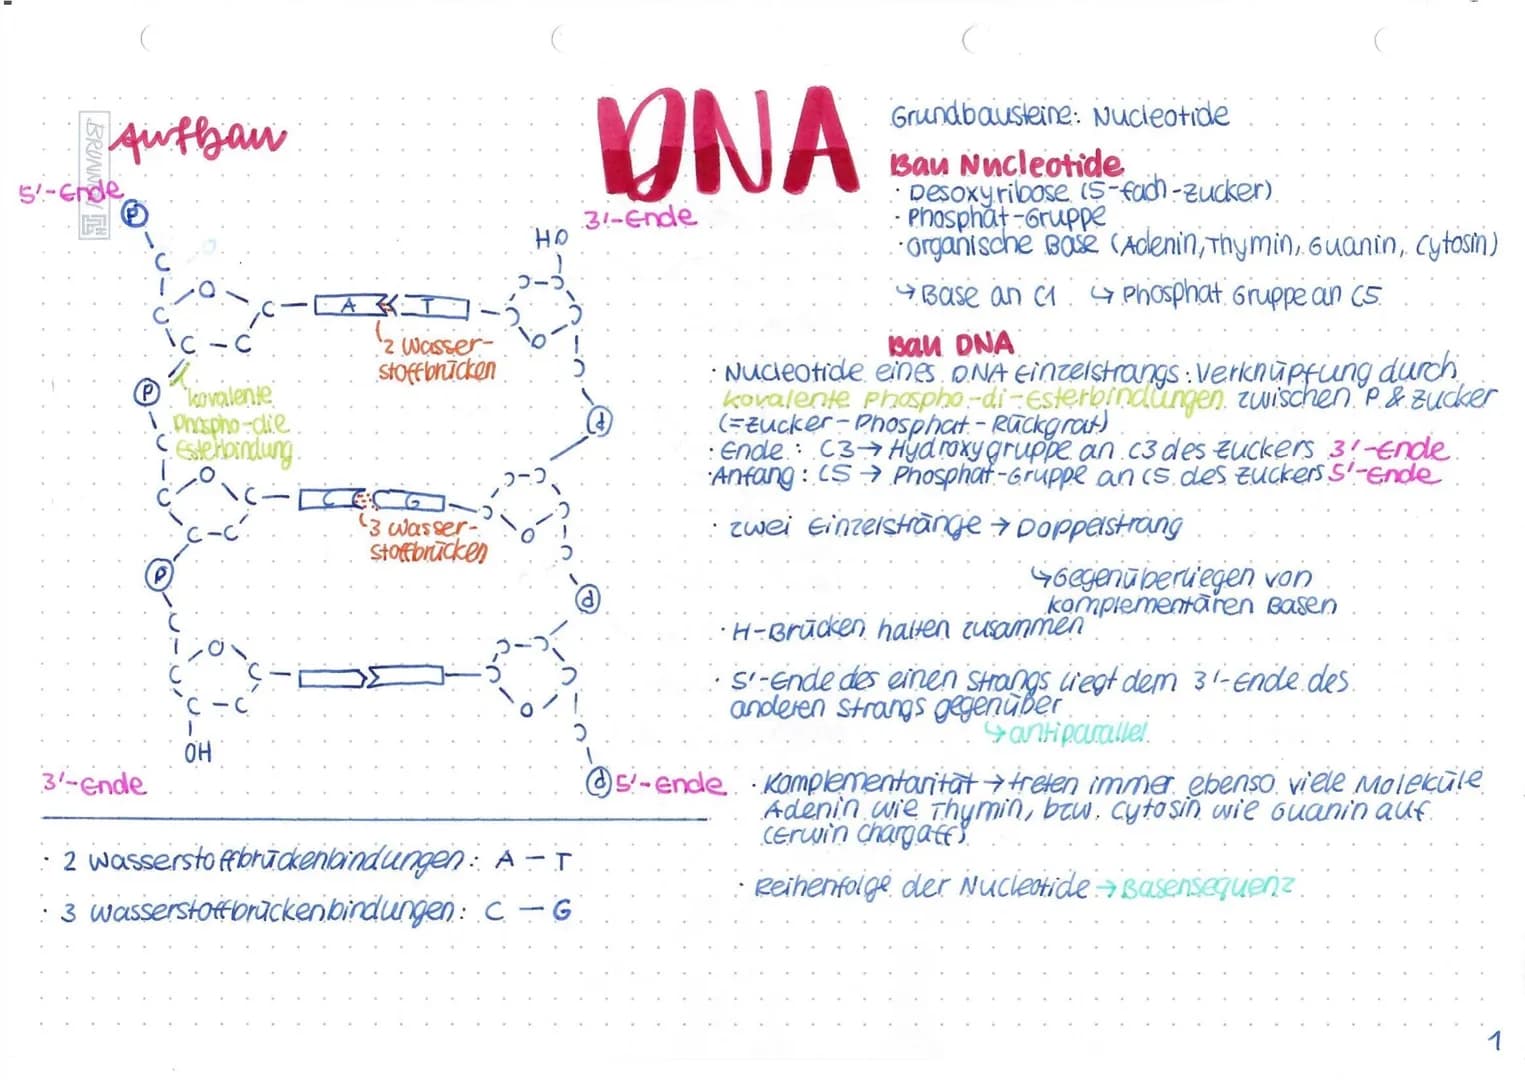 DNA
Aufbau
BRUNNEN
5'-Ende
P
C
O
C
C
C
C
A
T
2 Wasser-
stoffbrücken
3'-Ende
HO
kovalente
Phospho-die
Esterbindung
P
C
O
C
C
C
C
C
G
3 Wasser-
stoffbrücken
P
C
O
C
C
C
C
OH
3'-Ende
P
5'-Ende
2 Wasserstoffbrückenbindungen: A – T
3 Wasserstoffbrückenbindungen: C – G
Grundbausteine: Nucleotide
Bau Nucleotide
· Desoxyribose (5-fach-Zucker)
· Phosphat-Gruppe
· organische Base (Adenin, Thymin, Guanin, Cytosin)
↳ Base an C1 ↳ Phosphat Gruppe an C5
Bau DNA
· Nucleotide eines DNA Einzelstrangs: Verknüpfung durch
kovalente Phospho-di-Esterbindungen zwischen P & Zucker
(=Zucker-Phosphat-Rückgrat)
· Ende: C3 → Hydroxygruppe an C3 des Zuckers 3'-Ende
· Anfang: C5 → Phosphat-Gruppe an C5 des Zuckers 5'-Ende
· zwei Einzelstränge → Doppelstrang
↳ Gegenüberliegen von
komplementären Basen
· H-Brücken halten zusammen
· 5'-Ende des einen Strangs liegt dem 3'-Ende des
anderen Strangs gegenüber
↳ antiparallel
· Komplementarität → treten immer ebenso viele Moleküle
Adenin wie Thymin, bzw. Cytosin wie Guanin auf
(Erwin Chargaff)
· Reihenfolge der Nucleotide → Basensequenz
1